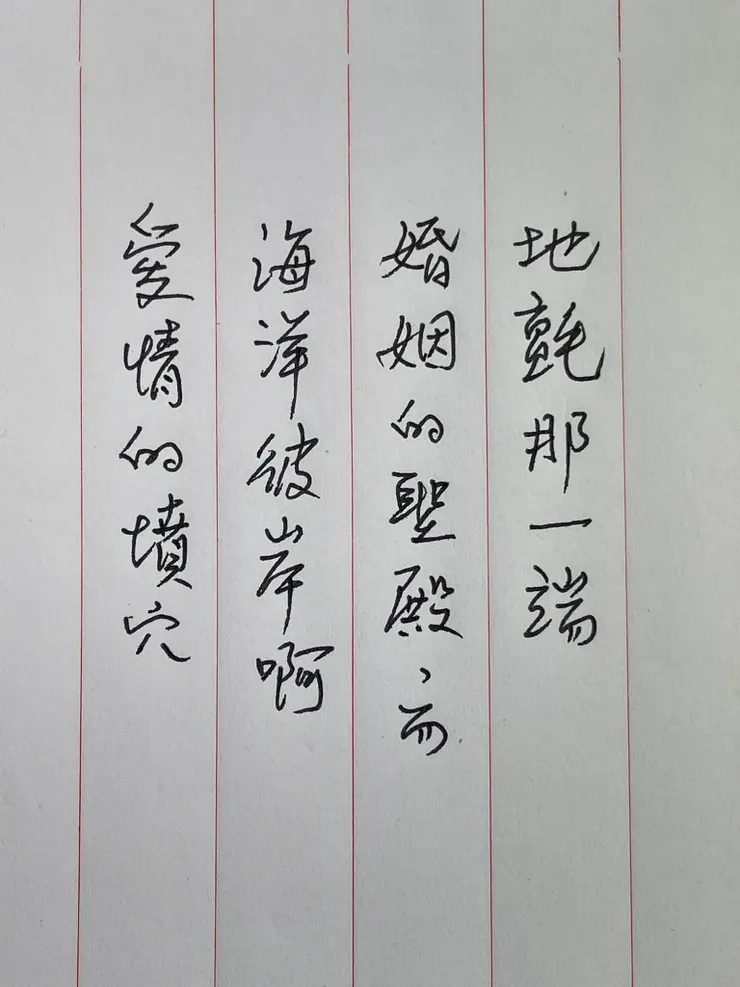 地氈那一端
婚姻的聖殿、而
海洋彼岸啊
愛情的墳穴